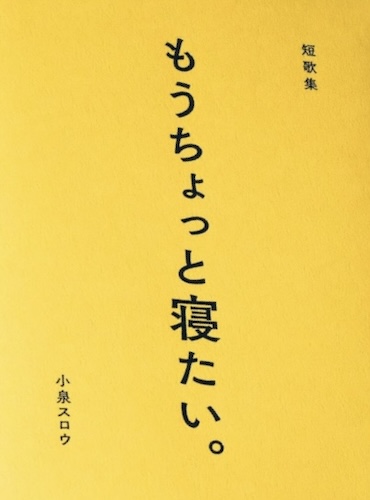 短歌集
もうちょっと寝たい。
小泉スロウ